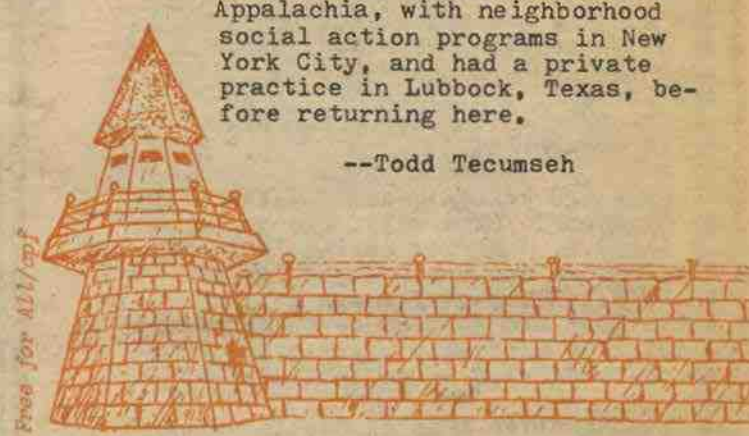 Appalachia, with neighborhood
social action programs in New
York City, and had a private
practice in Lubbock, Texas, be-
fore returning here.
--Todd Tecumseh
Free for All/cpf